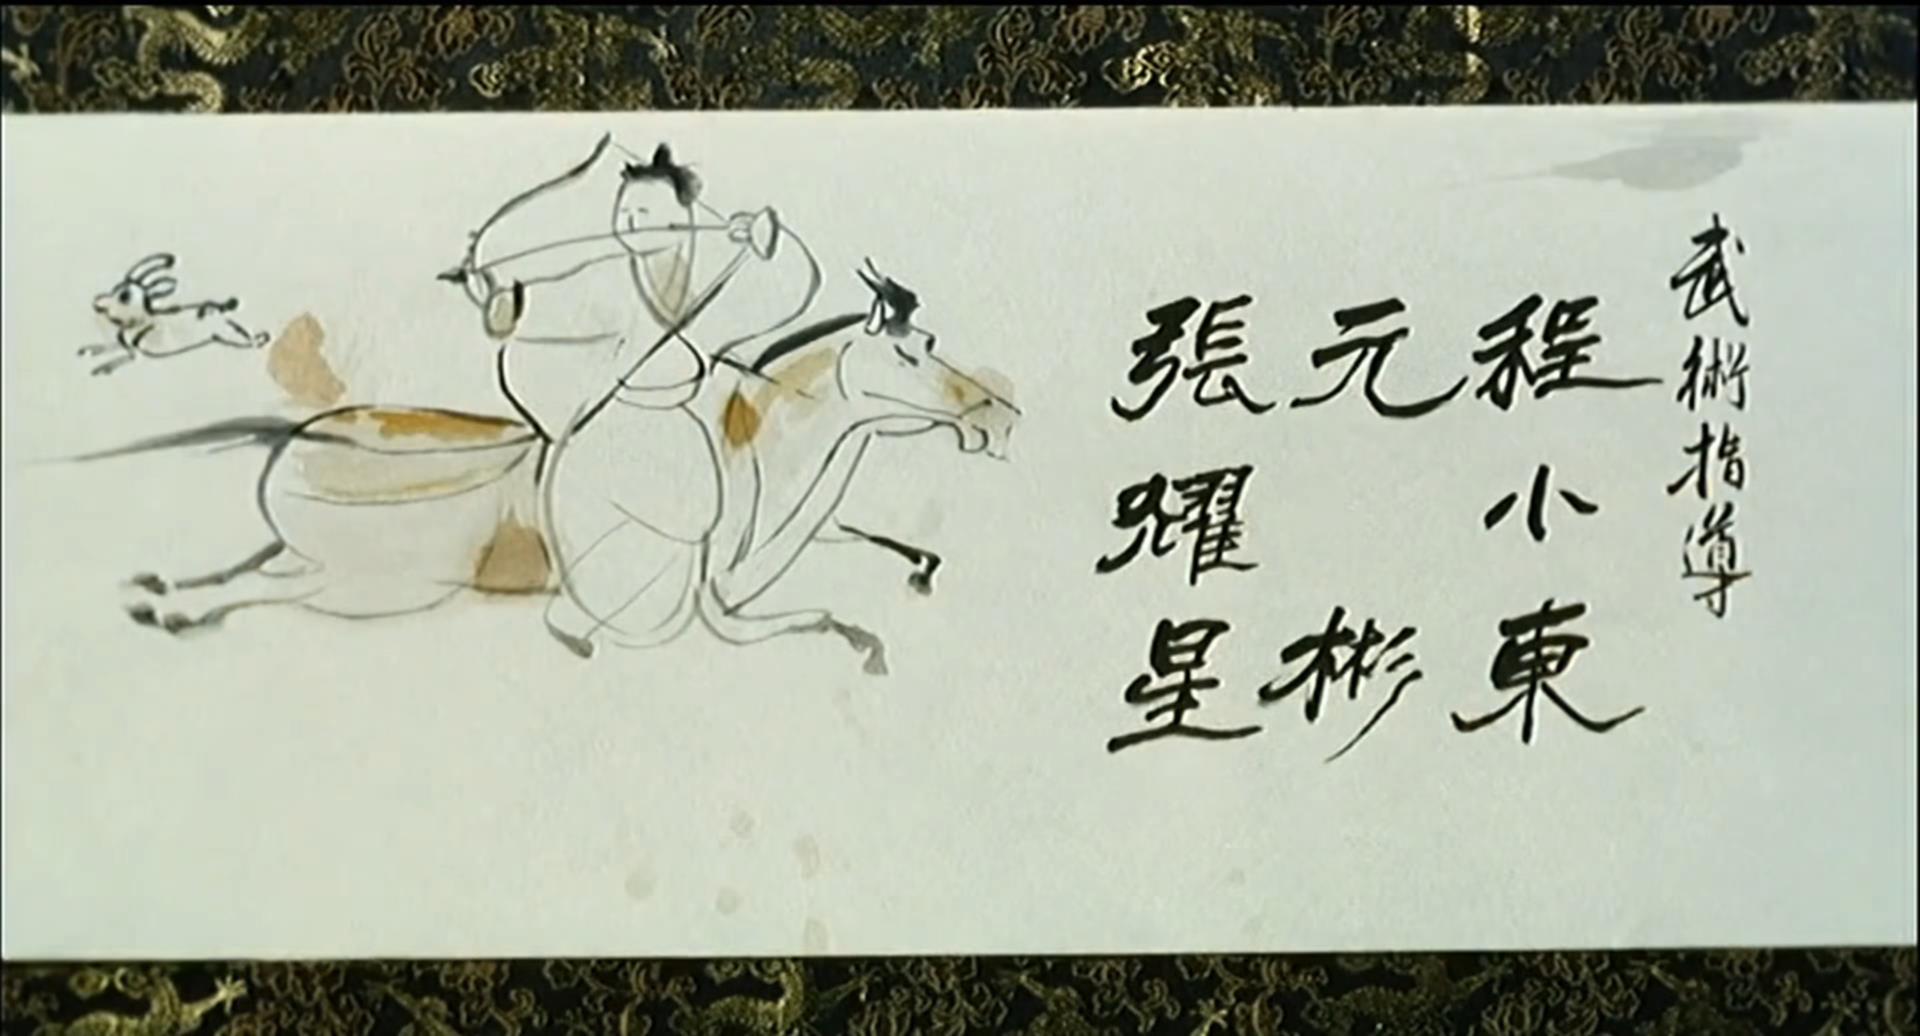 武術指導
程小東
元彬
張耀星